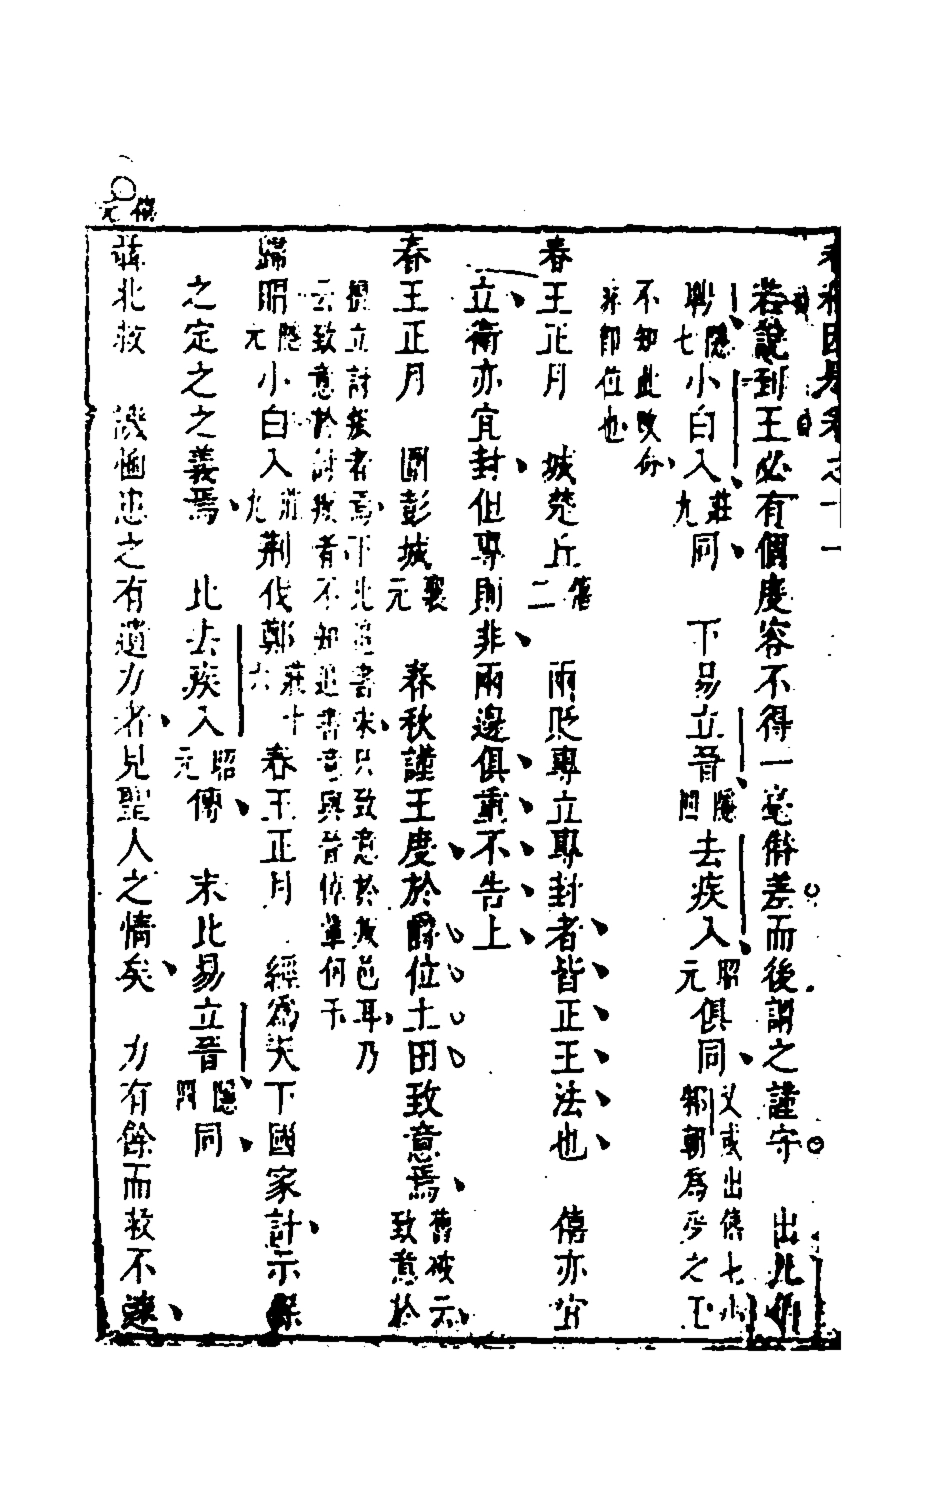 若說到王必有個度容不得一毫僭差而後謂之謹守　出此
聘隱七小白入莊九同　下易立晉隱四去疾入昭元俱同又或出僖七小邾朝為爭之王
不知此改命
非即位也
春王正月　城楚丘僖二　兩貶專立專封者皆正王法也　僖亦宜
立衛亦宜封但專則非兩邊俱重不告上
春王正月　圍彭城襄元　春秋謹王度於爵位土田致意焉舊破云致意於
擅立討叛者焉下比追書宋只致意於叛邑耳乃
云致意於討叛者不知追書意與晉悼單何干
歸昭元隱小白入莊九荆伐鄭莊十六春王正月　經為天下國家計示保
之定之之義焉　比去疾入昭元傳　末比易立晉隱四同
僖元
聶北救　譏恤患之有遺力者見聖人之情矣　力有餘而救不速